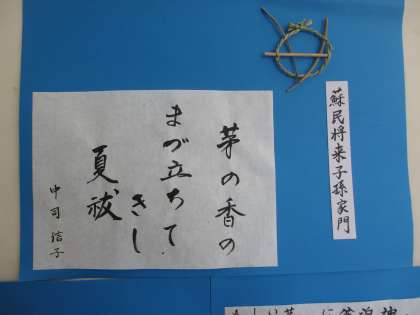 蘇民将来子孫家門
茅の香の
まづ立ちて
きし
夏祓
中司信子